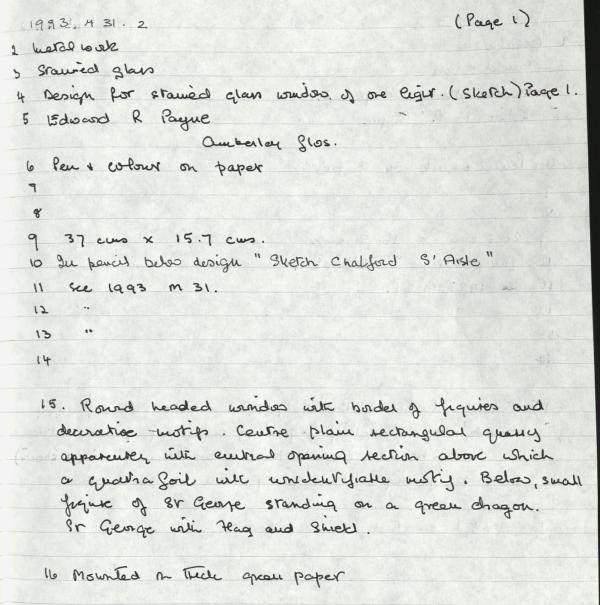 1993. M 31. 2 (Page 1)
2 Metalwork
3 Stained glass
4 Design for stained glass window of one light. (Sketch) Page 1.
5 Edward R Payne
Amberley Glos.
6 Pen & colour on paper
7
8
9 37 cms x 15.7 cms.
10 In pencil below design "Sketch Chalford S' Aisle"
11 See 1993 M 31.
12 "
13 "
14
15. Round headed window with border of figures and
decorative motifs. Centre plain rectangular quarry
apparently with central opening section above which
a quatrafoil with unidentifiable motif. Below, small
figure of St George standing on a green dragon.
St George with Flag and Shield.
16 Mounted on thick green paper